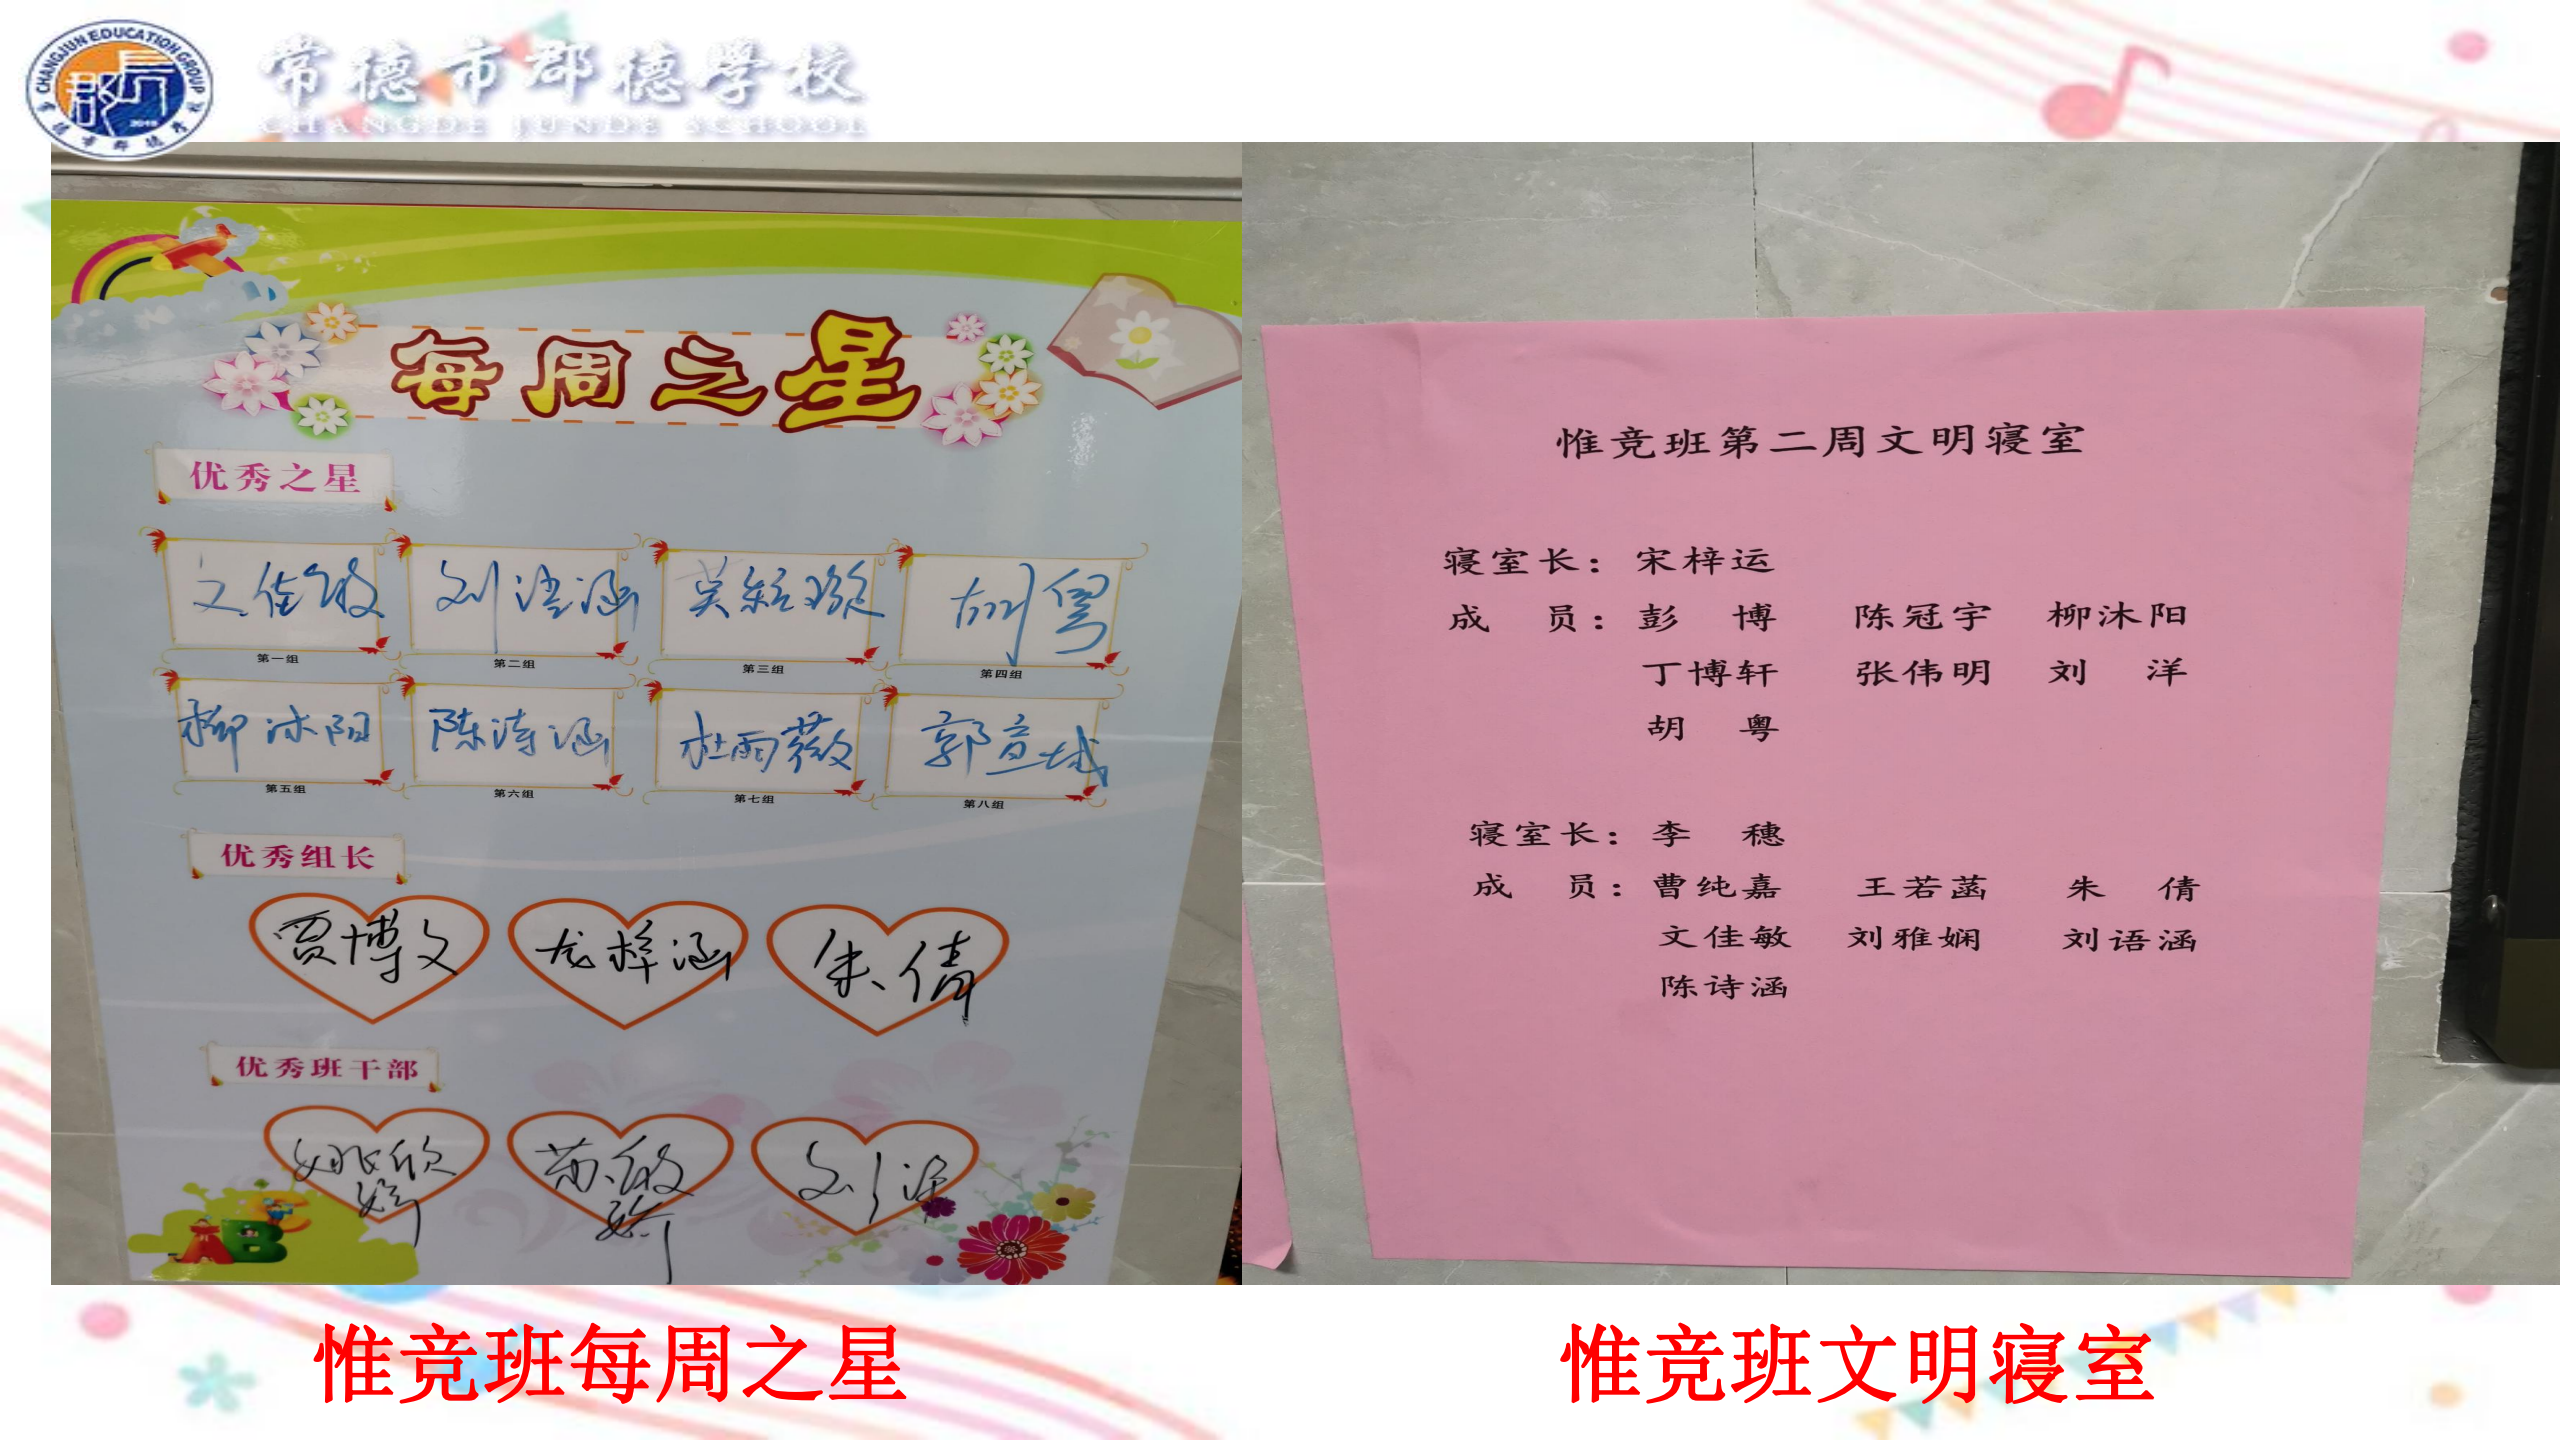 CHANGJUN EDUCATION GROUP
郡
2019
常德市郡德学校
常德市郡德學校
CHANGDE JUNDE SCHOOL
每周之星
优秀之星
文佳敏 刘语涵 胡粤
第一组 第二组 第三组 第四组
柳沐阳 陈诗涵 杜雨薇 郭宣城
第五组 第六组 第七组 第八组
优秀组长
贾博文 龙梓涵 朱倩
优秀班干部
姚欣婷 苏敏娇 刘洋
AB
惟竞班第二周文明寝室
寝室长：宋梓运
成 员：彭 博 陈冠宇 柳沐阳
丁博轩 张伟明 刘 洋
胡 粤
寝室长：李 穗
成 员：曹纯嘉 王若菡 朱 倩
文佳敏 刘雅娴 刘语涵
陈诗涵
惟竞班每周之星
惟竞班文明寝室